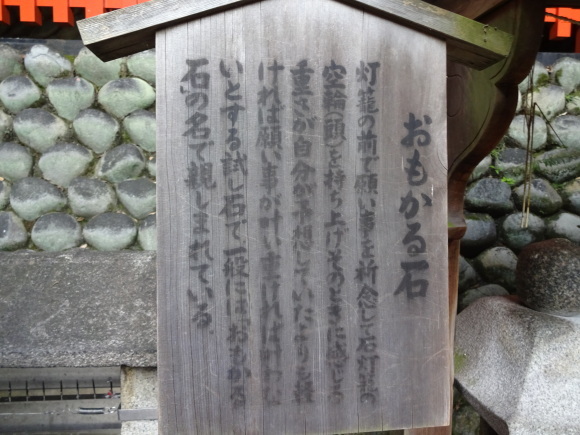 おもかる石
灯籠の前で願い事を祈念して石灯籠の
空輪(頭)を持ち上げそのときに感じる
重さが自分が予想していたよりも軽
ければ願い事が叶い、重ければ叶わな
いとする試し石で、一般には「おもかる
石」の名で親しまれている。